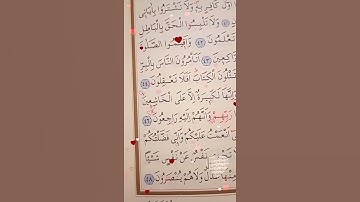 اَوَّلَ كَافِرٍ بِهٖ وَلَا تَشْتَرُوا بِاٰيَاتٖى
وَلَا تَلْبِسُوا الْحَقَّ بِالْبَاطِلِ
تَعْلَمُونَ ﴿٤٢﴾ وَاَقٖيمُوا الصَّلٰوةَ
﴿٤٣﴾ اَتَأْمُرُونَ النَّاسَ بِالْبِرِّ
تَتْلُونَ الْكِتَابَ اَفَلَا تَعْقِلُونَ ﴿٤٤﴾
لَكَبٖيرَةٌ اِلَّا عَلَى الْخَاشِعٖينَ
وَاَنَّهُمْ اِلَيْهِ رَاجِعُونَ ﴿٤٦﴾
اَنْعَمْتُ عَلَيْكُمْ وَاَنّٖى فَضَّلْتُكُمْ
نَفْسٌ عَنْ نَفْسٍ شَيْـًٔا
عَدْلٌ وَلَا هُمْ يُنْصَرُونَ ﴿٤٨﴾